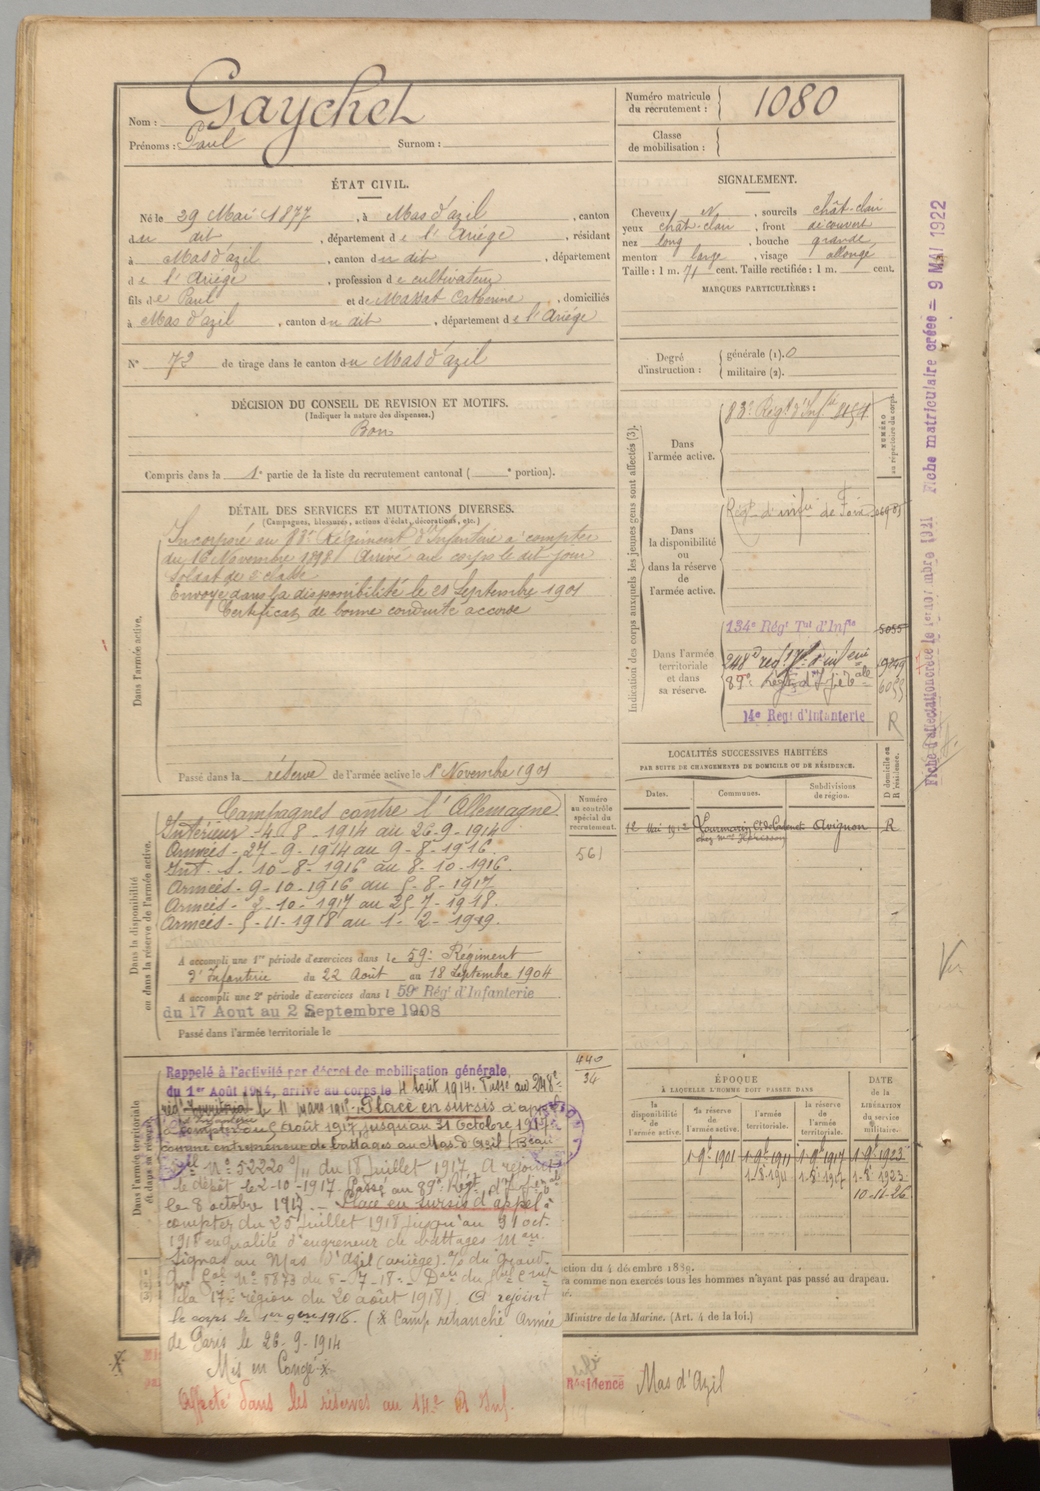 Nom : Gaychet
Prénoms : Paul Surnom :
Numéro matricule du recrutement : 1080
Classe de mobilisation :
ÉTAT CIVIL.
Né le 29 Mai 1877, à Mas d'azil, canton
du dit, département de l'Ariége, résidant
à Mas d'azil, canton du dit, département
de l'Ariége, profession de cultivateur
fils de Paul et de Massat Catherine, domiciliés
à Mas d'azil, canton du dit, département de l'Ariége
N° 72 de tirage dans le canton du Mas d'azil
SIGNALEMENT.
Cheveux N, sourcils chât-clair
yeux chât-clair, front découvert
nez long, bouche grande,
menton large, visage allongé
Taille : 1 m. 71 cent. Taille rectifiée : 1 m. cent.
MARQUES PARTICULIÈRES :
Degré d'instruction : générale (1). 0
militaire (2).
DÉCISION DU CONSEIL DE REVISION ET MOTIFS.
(Indiquer la nature des dispenses.)
Bon
Compris dans la 1e partie de la liste du recrutement cantonal ( e portion).
DÉTAIL DES SERVICES ET MUTATIONS DIVERSES.
(Campagnes, blessures, actions d'éclat, décorations, etc.)
Dans l'armée active.
Incorporé au 83e Régiment d'Infanterie à compter
du 16 Novembre 1898 Arrivé au corps le dit jour
Soldat de 2e classe
Envoyé dans la disponibilité le 21 Septembre 1901
Certificat de bonne conduite accordé
Passé dans la réserve de l'armée active le 1er Novembre 1901
Indication des corps auxquels les jeunes gens sont affectés (3).
NUMÉRO au répertoire du corps.
Dans l'armée active.
83e Régt d'Infie
Dans la disponibilité ou dans la réserve de l'armée active.
Régt d'infie de Foix
Dans l'armée territoriale et dans sa réserve.
134e Régt Tal d'Infie 5055
248e
89e
6055
14e Regt d'Infanterie R
Fiche d'affectation créée le Fiche matriculaire créée = 9 MAI 1922
LOCALITÉS SUCCESSIVES HABITÉES
PAR SUITE DE CHANGEMENTS DE DOMICILE OU DE RÉSIDENCE.
Dates. Communes. Subdivisions de région. D domicile ou R résidence.
12 Mai 1912 Lourmarin Avignon R
Dans la disponibilité ou dans la réserve de l'armée active.
Numéro au contrôle spécial du recrutement.
561
Campagnes contre l'Allemagne
Intérieur - 4 - 8 - 1914 au 26-9-1914
Armées - 27 - 9 - 1914 au 9 - 8 - 1916.
Int. S. 10 - 8 - 1916 au 8 - 10 - 1916.
Armées - 9 - 10 - 1916 au 5 - 8 - 1917
Armées - 2 - 10 - 1917 au 25 7 - 1918.
Armées - 5 - 11 - 1918 au 1 - 2 - 1919.
A accompli une 1re période d'exercices dans le 59e Régiment
d'Infanterie du 22 Août au 18 Septembre 1904
A accompli une 2e période d'exercices dans l 59e Rég d'Infanterie
du 17 Aout au 2 Septembre 1908
Passé dans l'armée territoriale le
Dans l'armée territoriale et dans sa réserve.
440
34
Rappelé à l'activité par décret de mobilisation générale,
du 1er Août 1914, arrivé au corps le 4 Août 1914. Passé au 248e
régt le 11 mars 1915. Placé en sursis d'appel
à compter du 5 Août 1917, jusqu'au 31 Octobre 1917
comme entrepreneur de battages au Mas d'Azil
N° 52220 du 18 juillet 1917. A rejoint
le dépôt le 2-10-1917. Passé au 89e Régt d'Infie
le 8 octobre 1917. - Placé en sursis d'appel à
compter du 25 juillet 1918 jusqu'au 31 oct.
1918 en qualité d'engreneur de battages
au Mas d'Azil (ariège). du Grand
N° 5873 du 5-7-18.
la 17e région du 20 août 1918). A rejoint
le corps le 1er 9bre 1918. (x Camp retranché Armée
de Paris le 26-9-1914
Mis en Congé x
Affecté dans les réserves au 14e R Inf.
ÉPOQUE
À LAQUELLE L'HOMME DOIT PASSER DANS
DATE DE LA LIBÉRATION du service militaire.
la disponibilité de l'armée active. la réserve de l'armée active. l'armée territoriale. la réserve de l'armée territoriale.
1-9e 1901 1-9e 1911 1-9e 1917 1-9e 1923
1-8e 1923
10-11-26
ction du 4 décembre 1889.
ra comme non exercés tous les hommes n'ayant pas passé au drapeau.
Ministre de la Marine. (Art. 4 de la loi.)
Résidence Mas d'Azil